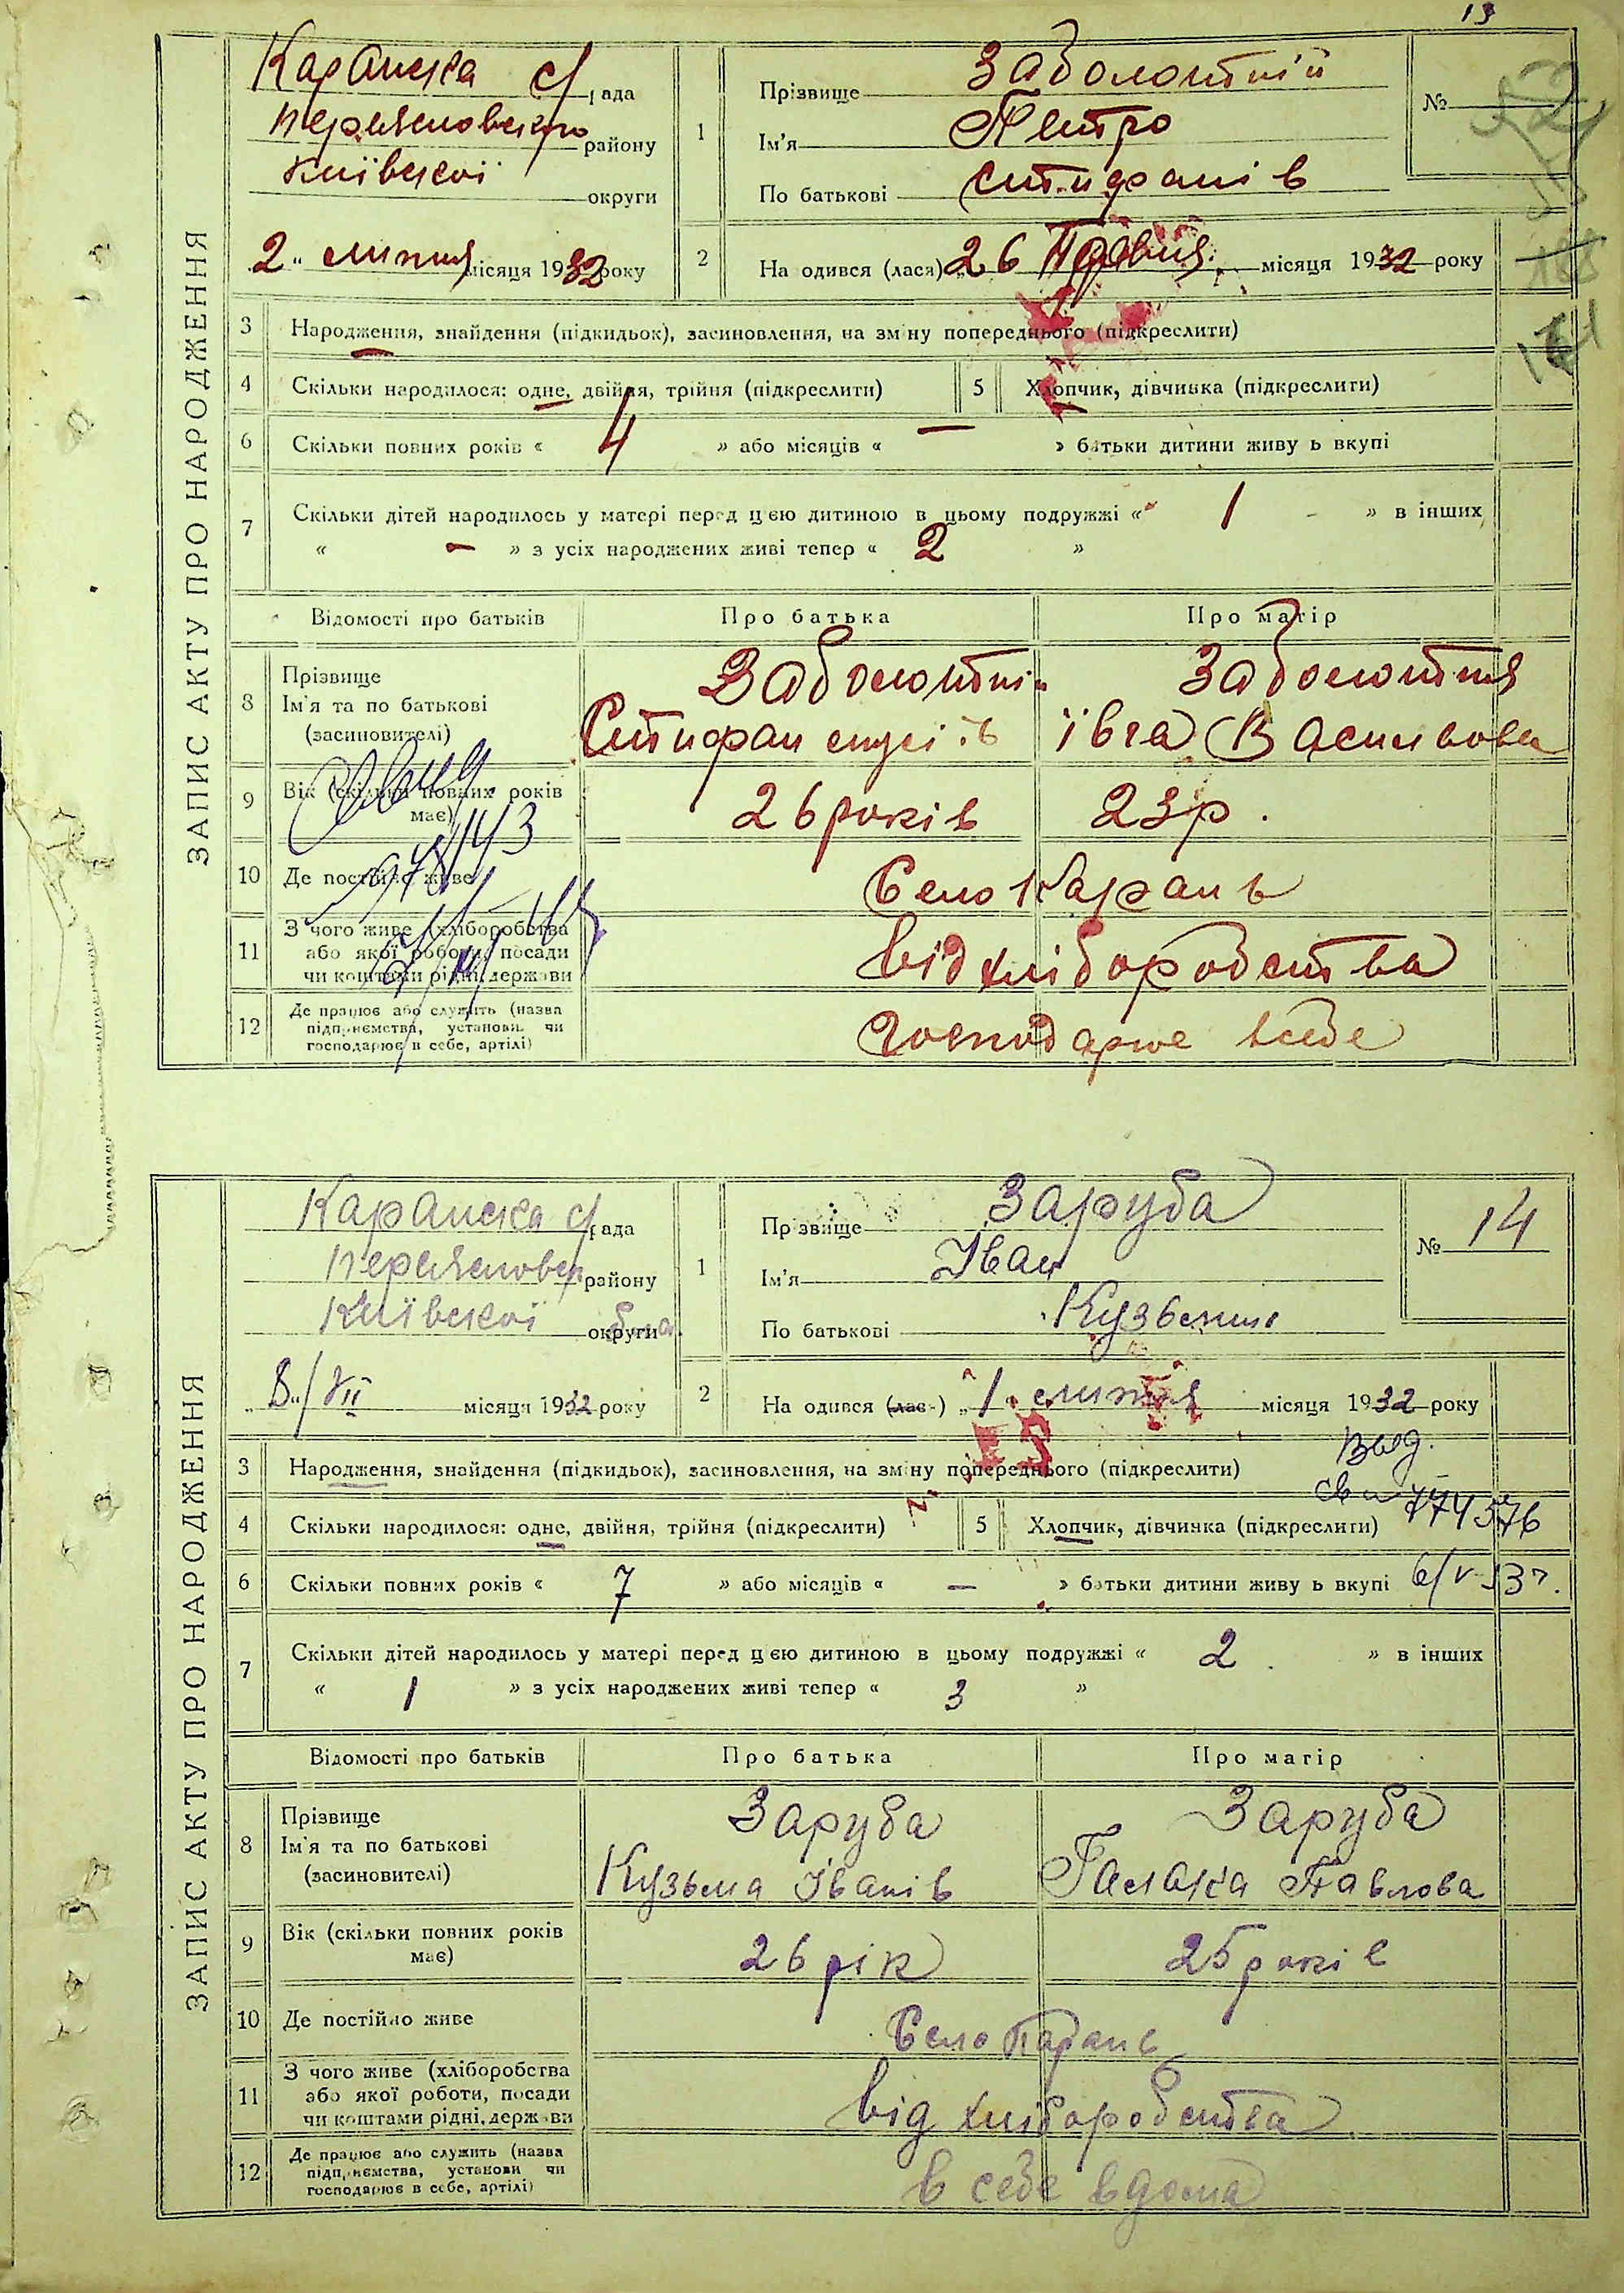 13
ЗАПИС АКТУ ПРО НАРОДЖЕННЯ
Каранська с/рада
Переяславського району
Київської округи
„2“ липня місяця 1932 року
1 Прізвище Заболотній
Ім'я Петро
По батькові Стифанів
№
2 На одився (лася) „26 Травня місяця 1932 року
3 Народження, знайдення (підкидьок), засиновлення, на зміну попереднього (підкреслити)
4 Скільки народилося: одне, двійня, трійня (підкреслити) 5 Хлопчик, дівчинка (підкреслити)
6 Скільки повних років « 4 » або місяців « — » батьки дитини живу ь вкупі
7 Скільки дітей народилось у матері перед цією дитиною в цьому подружжі « 1 » в інших
« - » з усіх народжених живі тепер « 2 »
Відомості про батьків Про батька Про матір
8 Прізвище Заболотній Заболотня
Ім'я та по батькові
(засновителі) Стифан Ївга Василова
9 Вік (скільки повних років має) 26 років 23 р.
10 Де постійно живе Село Карань
11 З чого живе (хліборобства
або якої роботи, посади
чи коштами рідні, держави від хліборобства
12 Де працює або служить (назва
підприємства, установи чи
господарює в себе, артілі) господарює в себе
ЗАПИС АКТУ ПРО НАРОДЖЕННЯ
Каранська с/рада
Переяславськ району
Київської округи
„8“/VII місяця 1932 року
1 Прізвище Заруба
Ім'я Іван
По батькові Кузьмин
№ 14
2 На одився (лас-) „1“ липня місяця 1932 року
3 Народження, знайдення (підкидьок), засиновлення, на зміну попереднього (підкреслити)
4 Скільки народилося: одне, двійня, трійня (підкреслити) 5 Хлопчик, дівчинка (підкреслити)
774576
6 Скільки повних років « 7 » або місяців « — » батьки дитини живу ь вкупі
7 Скільки дітей народилось у матері перед цією дитиною в цьому подружжі « 2 » в інших
« 1 » з усіх народжених живі тепер « 3 »
Відомості про батьків Про батька Про матір
8 Прізвище Заруба Заруба
Ім'я та по батькові
(засиновителі) Кузьма Іванів Палажка Павлова
9 Вік (скільки повних років має) 26 рік 25 років
10 Де постійно живе Село Карань
11 З чого живе (хліборобства
або якої роботи, посади
чи коштами рідні, держави від хліборобства
12 Де працює або служить (назва
підприємства, установи чи
господарює в себе, артілі) в себе вдома